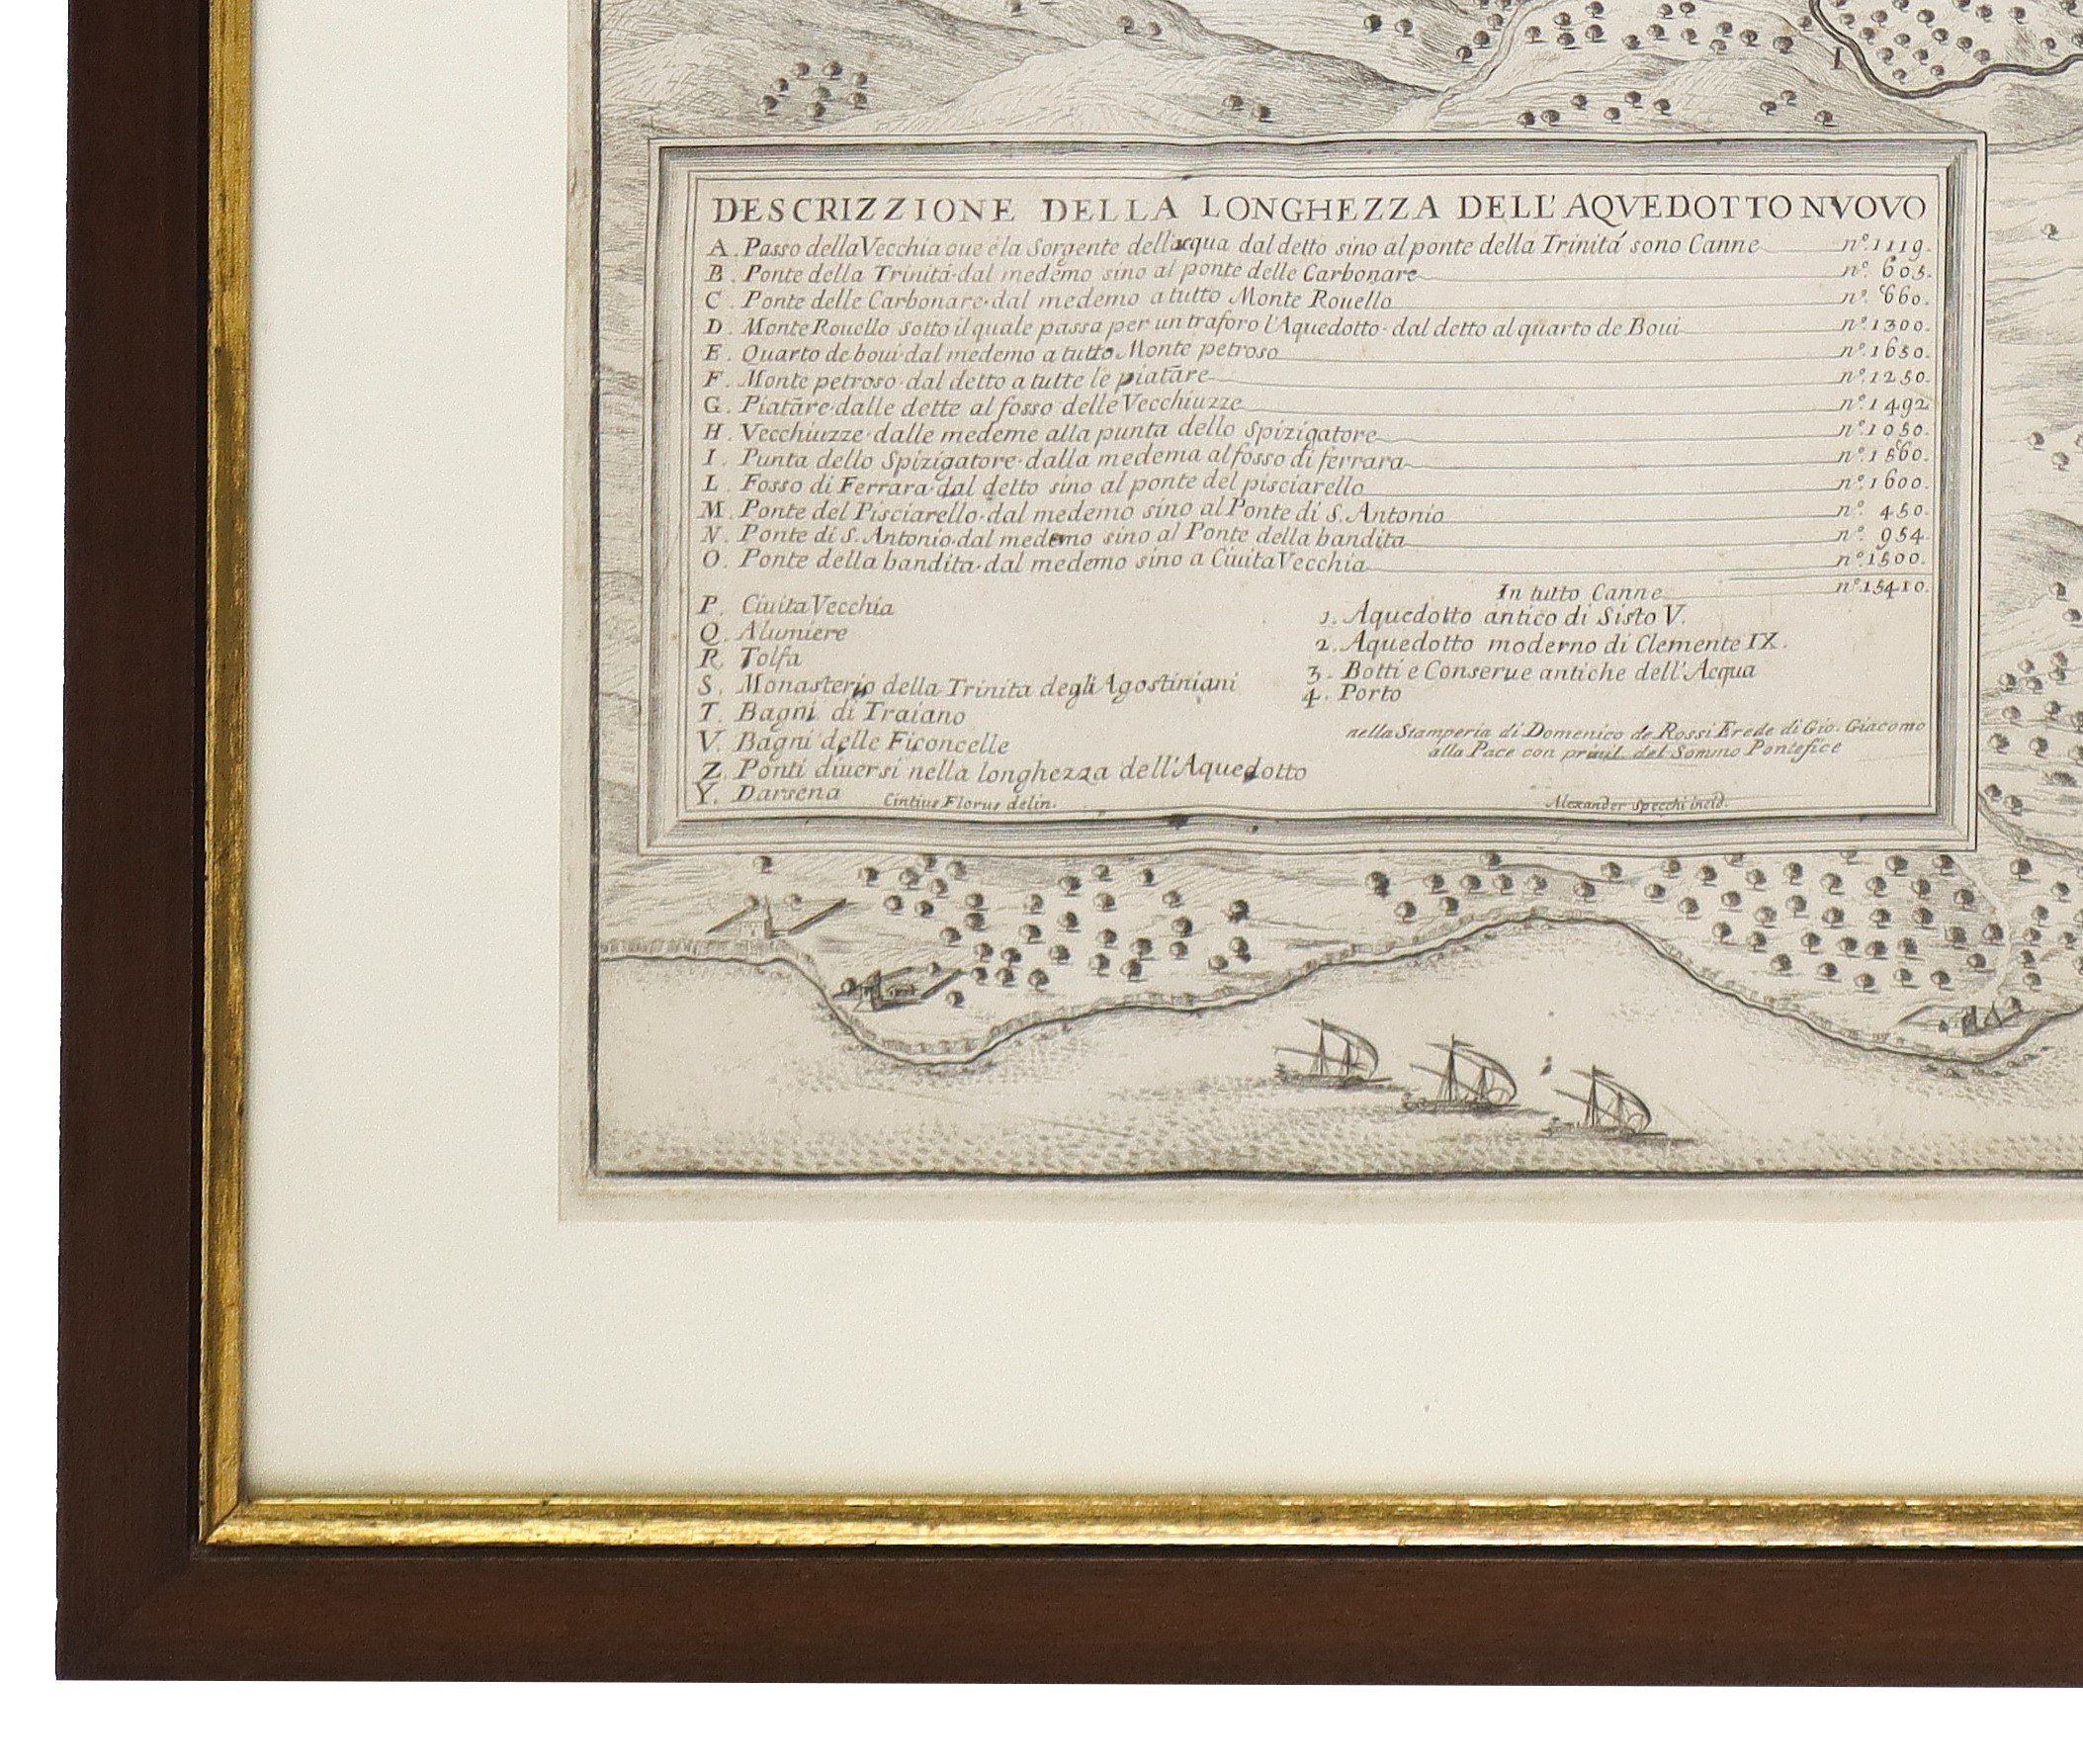 DESCRIZZIONE DELLA LONGHEZZA DELL' AQVEDOTTO NVOVO
A. Passo della Vecchia oue è la Sorgente dell'acqua dal detto sino al ponte della Trinità sono Canne nº. 1119.
B. Ponte della Trinità·dal medemo sino al ponte delle Carbonare nº. 605.
C. Ponte delle Carbonare·dal medemo a tutto Monte Rouello nº. 660.
D. Monte Rouello sotto il quale passa per un traforo l'Aquedotto·dal detto al quarto de Boui nº. 1300.
E. Quarto de boui·dal medemo a tutto Monte petroso nº. 1650.
F. Monte petroso·dal detto a tutte le piatāre nº. 1250.
G. Piatāre·dalle dette al fosso delle Vecchiuzze nº. 1492
H. Vecchiuzze·dalle medeme alla punta dello Spizigatore nº. 1050.
I. Punta dello Spizigatore·dalla medema al fosso di ferrara nº. 1560.
L. Fosso di Ferrara·dal detto sino al ponte del pisciarello nº. 1600.
M. Ponte del Pisciarello·dal medemo sino al Ponte di S. Antonio nº. 450.
N. Ponte di S. Antonio·dal medemo sino al Ponte della bandita nº. 954.
O. Ponte della bandita·dal medemo sino a Ciuita Vecchia nº. 1500.
In tutto Canne nº. 15410.
P. Ciuita Vecchia
Q. Alumiere
R. Tolfa
S. Monasterio della Trinita degli Agostiniani
T. Bagni di Traiano
V. Bagni delle Ficoncelle
Z. Ponti diuersi nella longhezza dell'Aquedotto
Y. Darsena
1. Aquedotto antico di Sisto V.
2. Aquedotto moderno di Clemente IX.
3. Botti e Conserue antiche dell'Acqua
4. Porto
nella Stamperia di Domenico de Rossi Erede di Gio. Giacomo
alla Pace con priuil. del Sommo Pontefice
Cintius Florus delin.
Alexander Specchi incid.
1